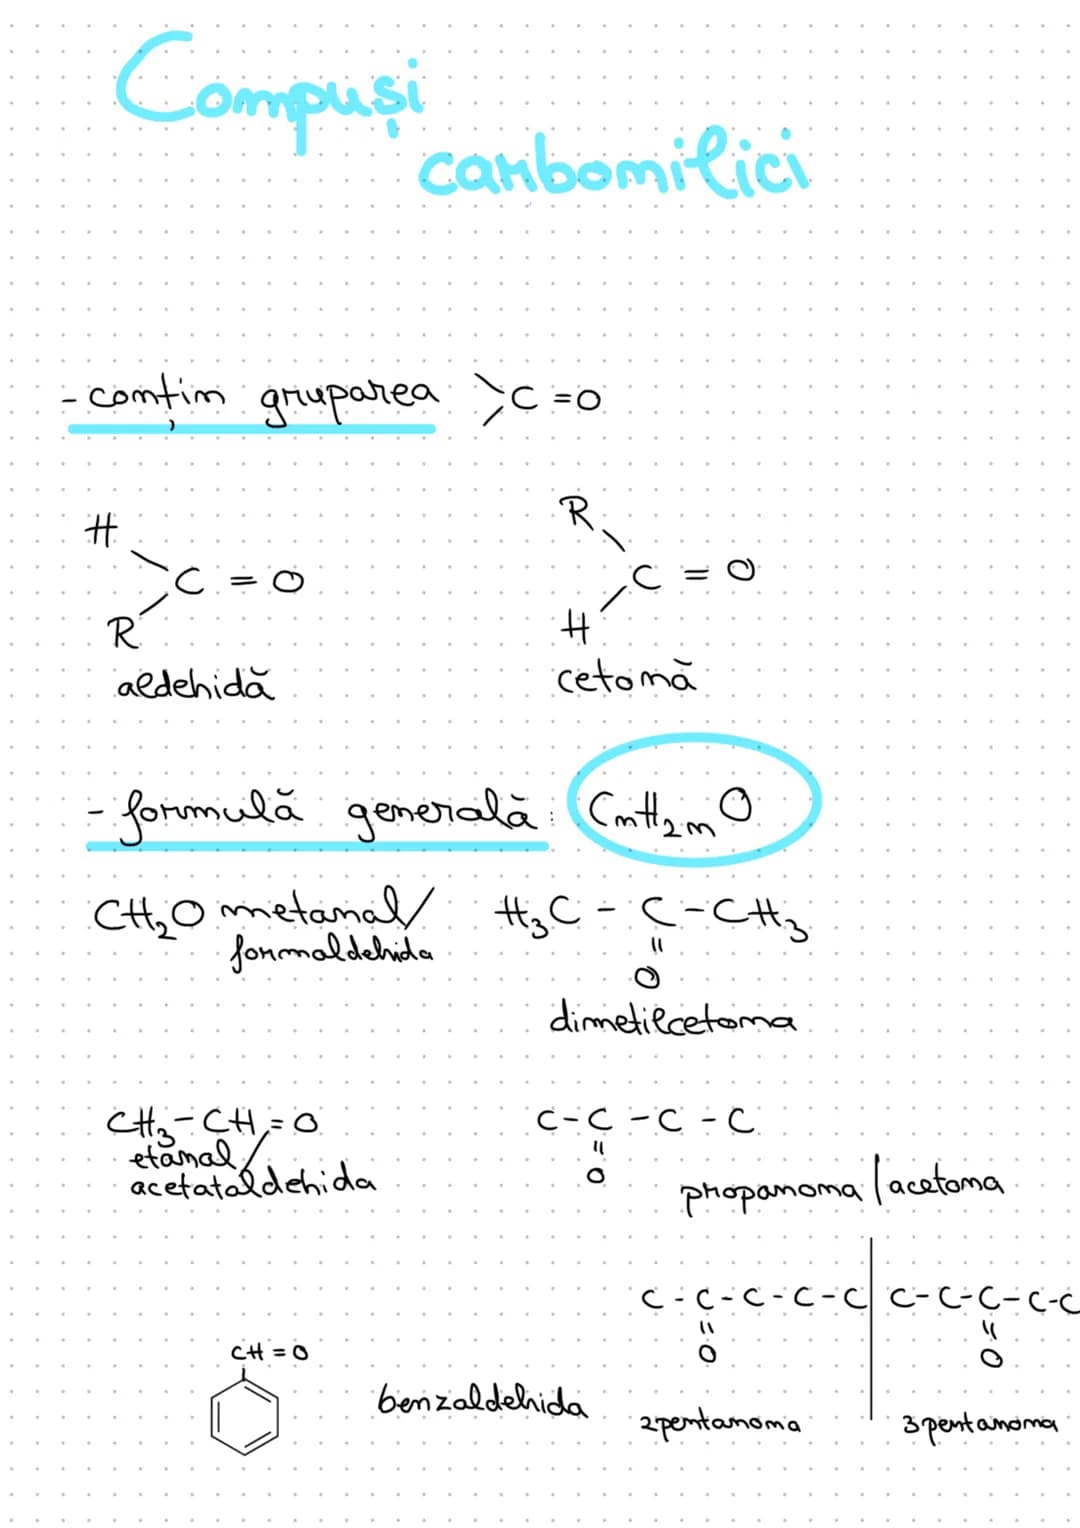 Compuși
carbonilici
- conțin gruparea >C=O
H
R
C = O
aldehidă
R
H
C = O
cetonă
- formulă generală: CnH2nO
CH2O metanal/
formaldehida
H3C - C - CH3
=
O
dimetilcetona
CH3-CH=O
etanal/
acetataldehida
C-C-C-C
=
O
propanona/acetona
C-C-C-C-C
=
O
2pentanona
C-C-C-C-C
=
O
3pentanona
CH=O
benzaldehida